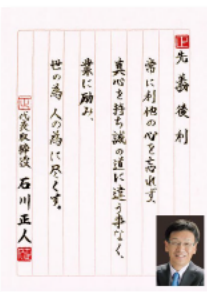 先義後利
常に利他の心を忘れず、
真心を持ち誠の道に違う事なく、
業に励み、
世の為 人の為に尽くす。
代表取締役 石川正人